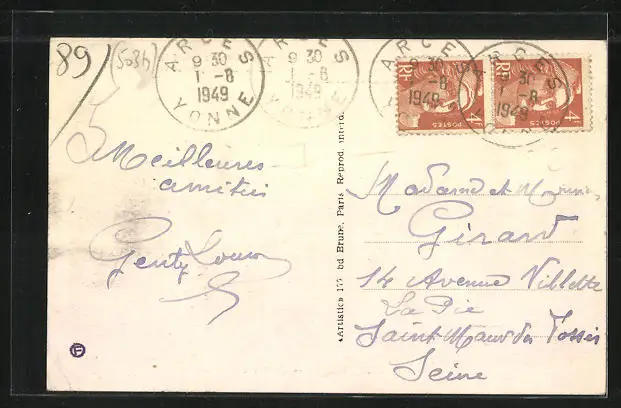 89
ARCES
9 30
1 -8
1949
YONNE
ARCES
9 30
1 -8
1949
YONNE
ARCES
9 30
1 -8
1949
ARCES
30
1 -8
1949
RF
4F
POSTES
RF
4F
POSTES
Meilleures
amitiés
Genty Louis
Artistica bd Brune, Paris Reprod. interd.
Madame et
Girard
14 Avenue Villette
La Pie
Saint-Maur des Fossés
Seine